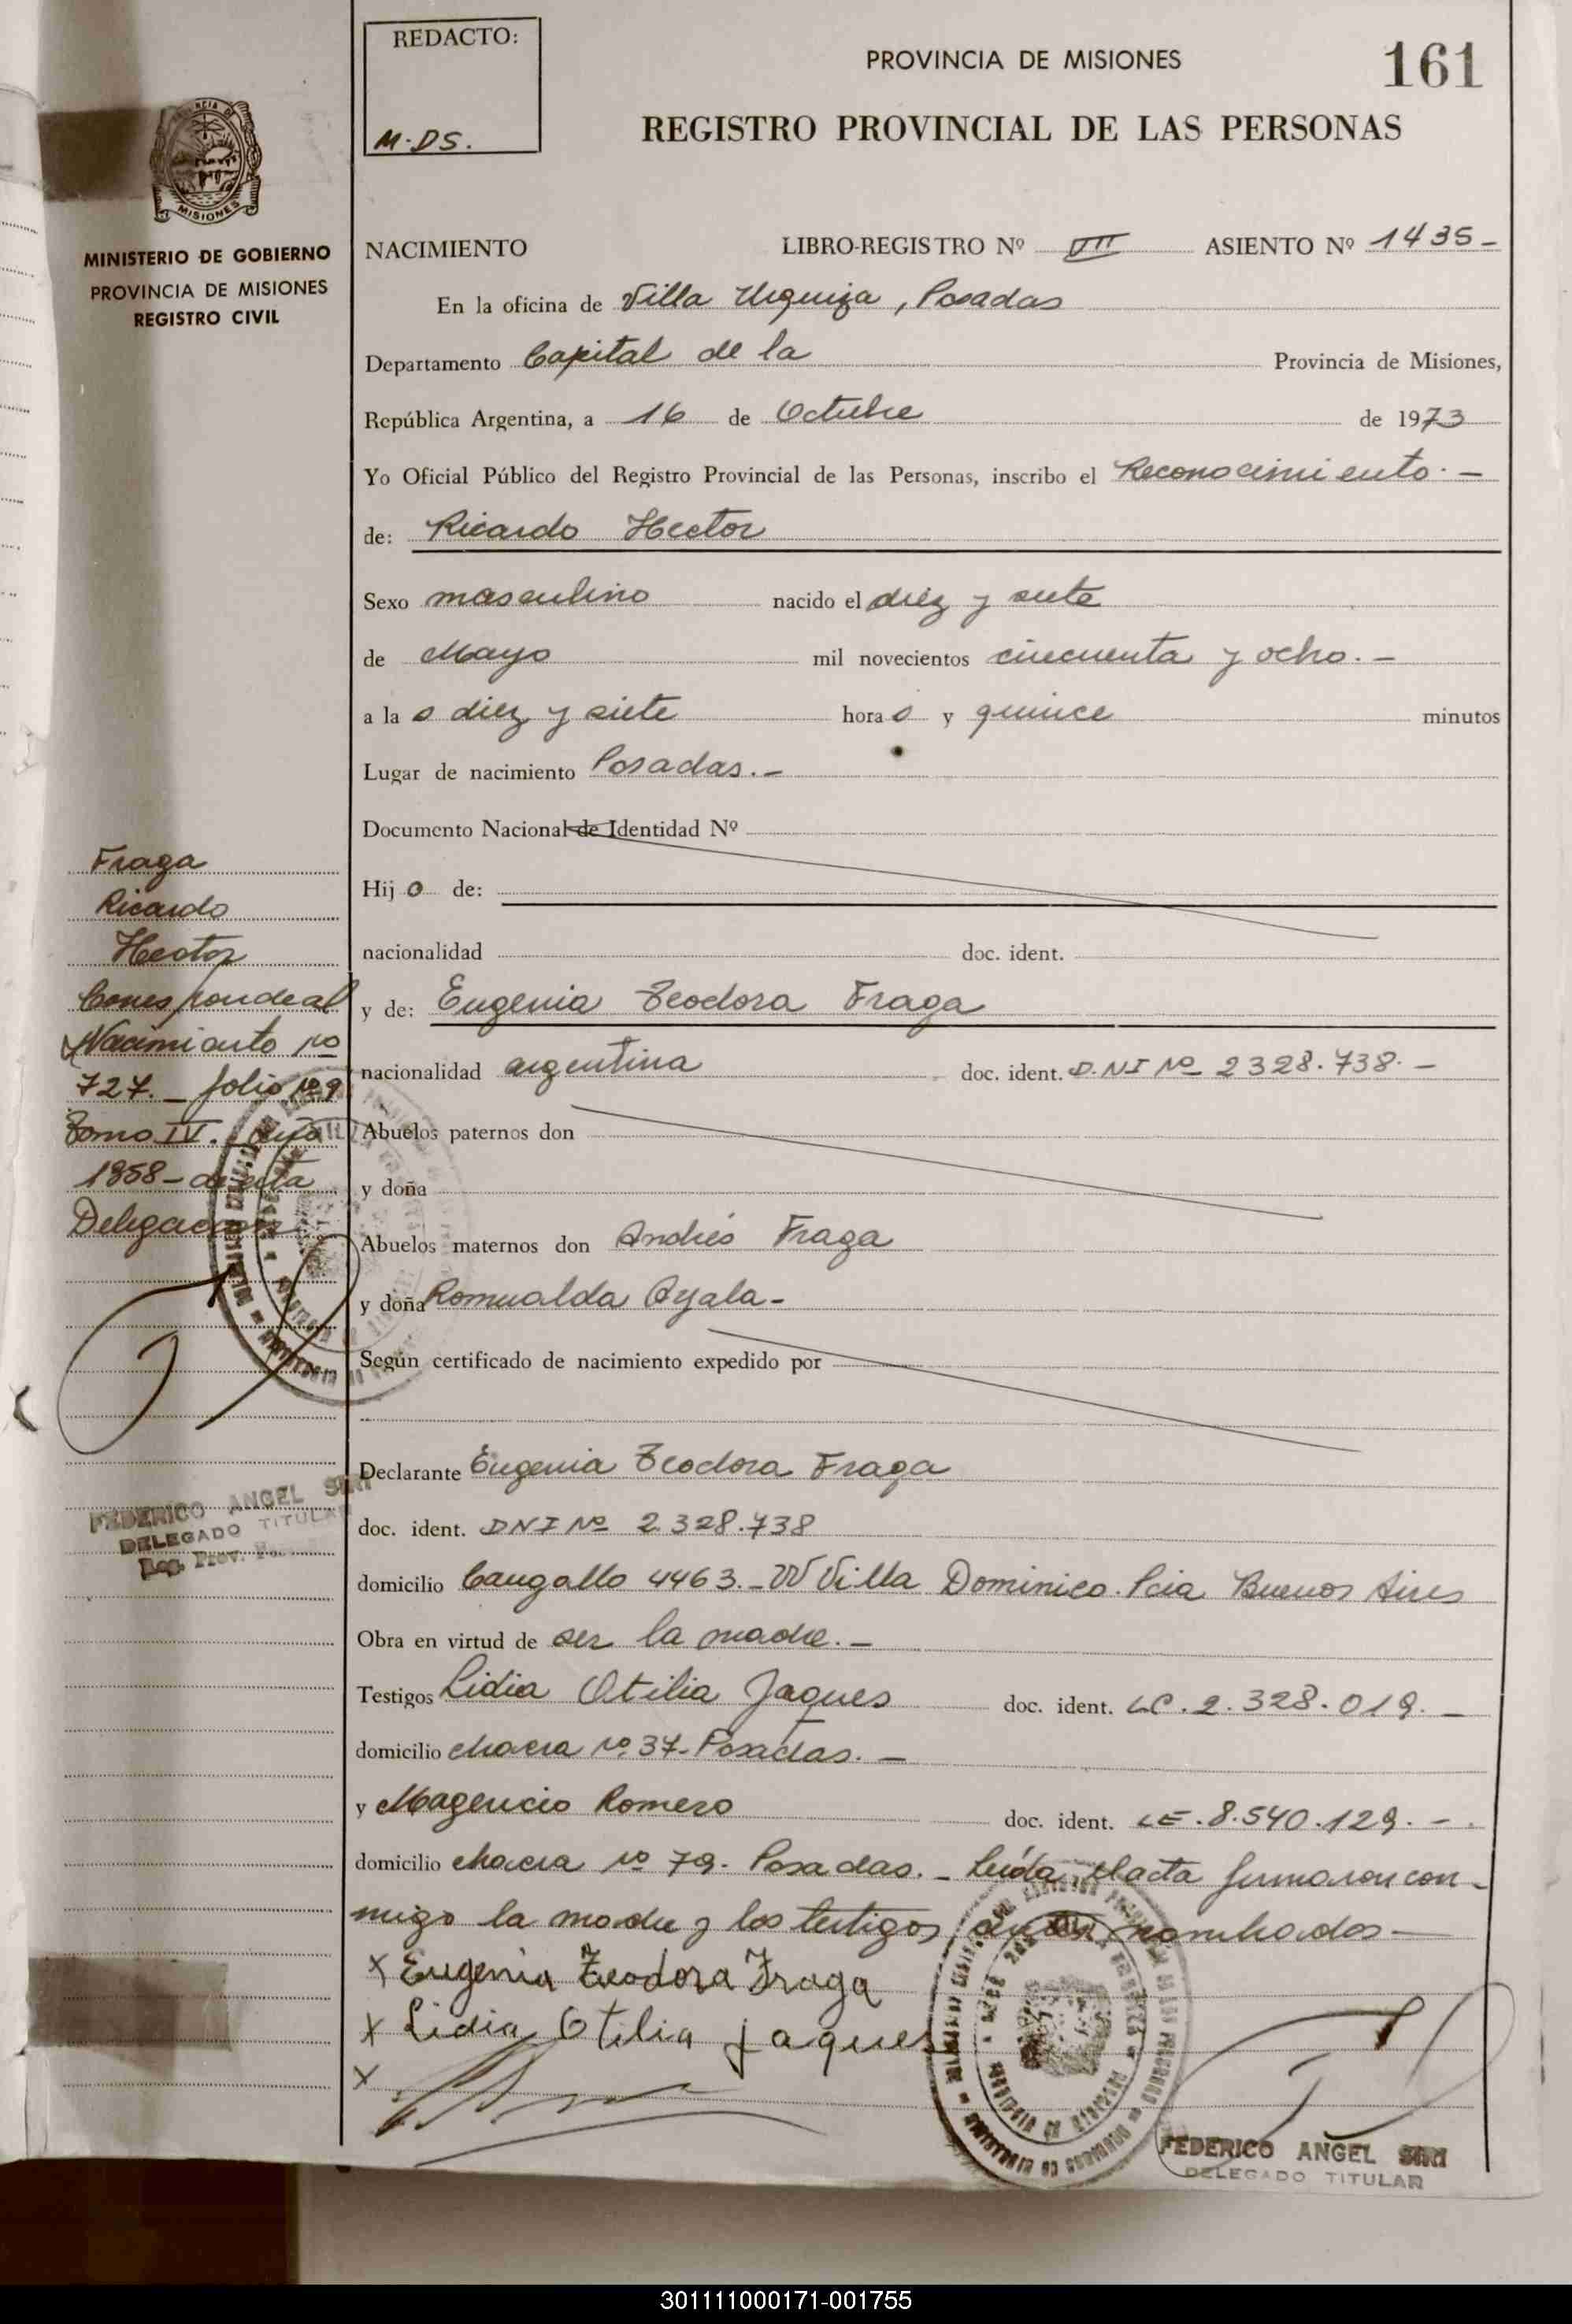 REDACTO:
M.DS.
PROVINCIA DE MISIONES
161
REGISTRO PROVINCIAL DE LAS PERSONAS
MISIONES
MINISTERIO DE GOBIERNO
PROVINCIA DE MISIONES
REGISTRO CIVIL
NACIMIENTO LIBRO-REGISTRO Nº VII ASIENTO Nº 1435-
En la oficina de Villa Urquiza, Posadas
Departamento Capital de la Provincia de Misiones,
República Argentina, a 16 de Octubre de 1973
Yo Oficial Público del Registro Provincial de las Personas, inscribo el Reconocimiento.-
de: Ricardo Hector
Sexo masculino nacido el diez y siete
de Mayo mil novecientos cincuenta y ocho.-
a la s diez y siete hora s y quince minutos
Lugar de nacimiento Posadas.-
Documento Nacional de Identidad Nº
Hij o de:
nacionalidad doc. ident.
y de: Eugenia Teodora Fraga
nacionalidad argentina doc. ident. D.NI Nº 2328.738.-
Abuelos paternos don
y doña
Abuelos maternos don Andrés Fraga
y doña Romualda Ayala-
Según certificado de nacimiento expedido por
Declarante Eugenia Teodora Fraga
doc. ident. DNI Nº 2.328.738
domicilio Cangallo 4463.- Villa Dominico. Pcia Buenos Aires
Obra en virtud de ser la madre.-
Testigos Lidia Otilia Jaques doc. ident. LC.2.328.019.-
domicilio chacra nº 37- Posadas.-
y Magencio Romero doc. ident. LE.8.540.129.-.
domicilio chacra nº 79- Posadas.- Leída el acta firmaron con-
migo la madre y los testigos antes nombrados-
x Eugenia Teodora Fraga
x Lidia Otilia Jaques
x
FEDERICO ANGEL SIRI
DELEGADO TITULAR
Fraga
Ricardo
Hector
Corresponde al
Nacimiento nº
727.- folio nº 9
Tomo IV. año
1958- de esta
Delegacion
FEDERICO ANGEL SIRI
DELEGADO TITULAR
Reg. Prov.
301111000171-001755